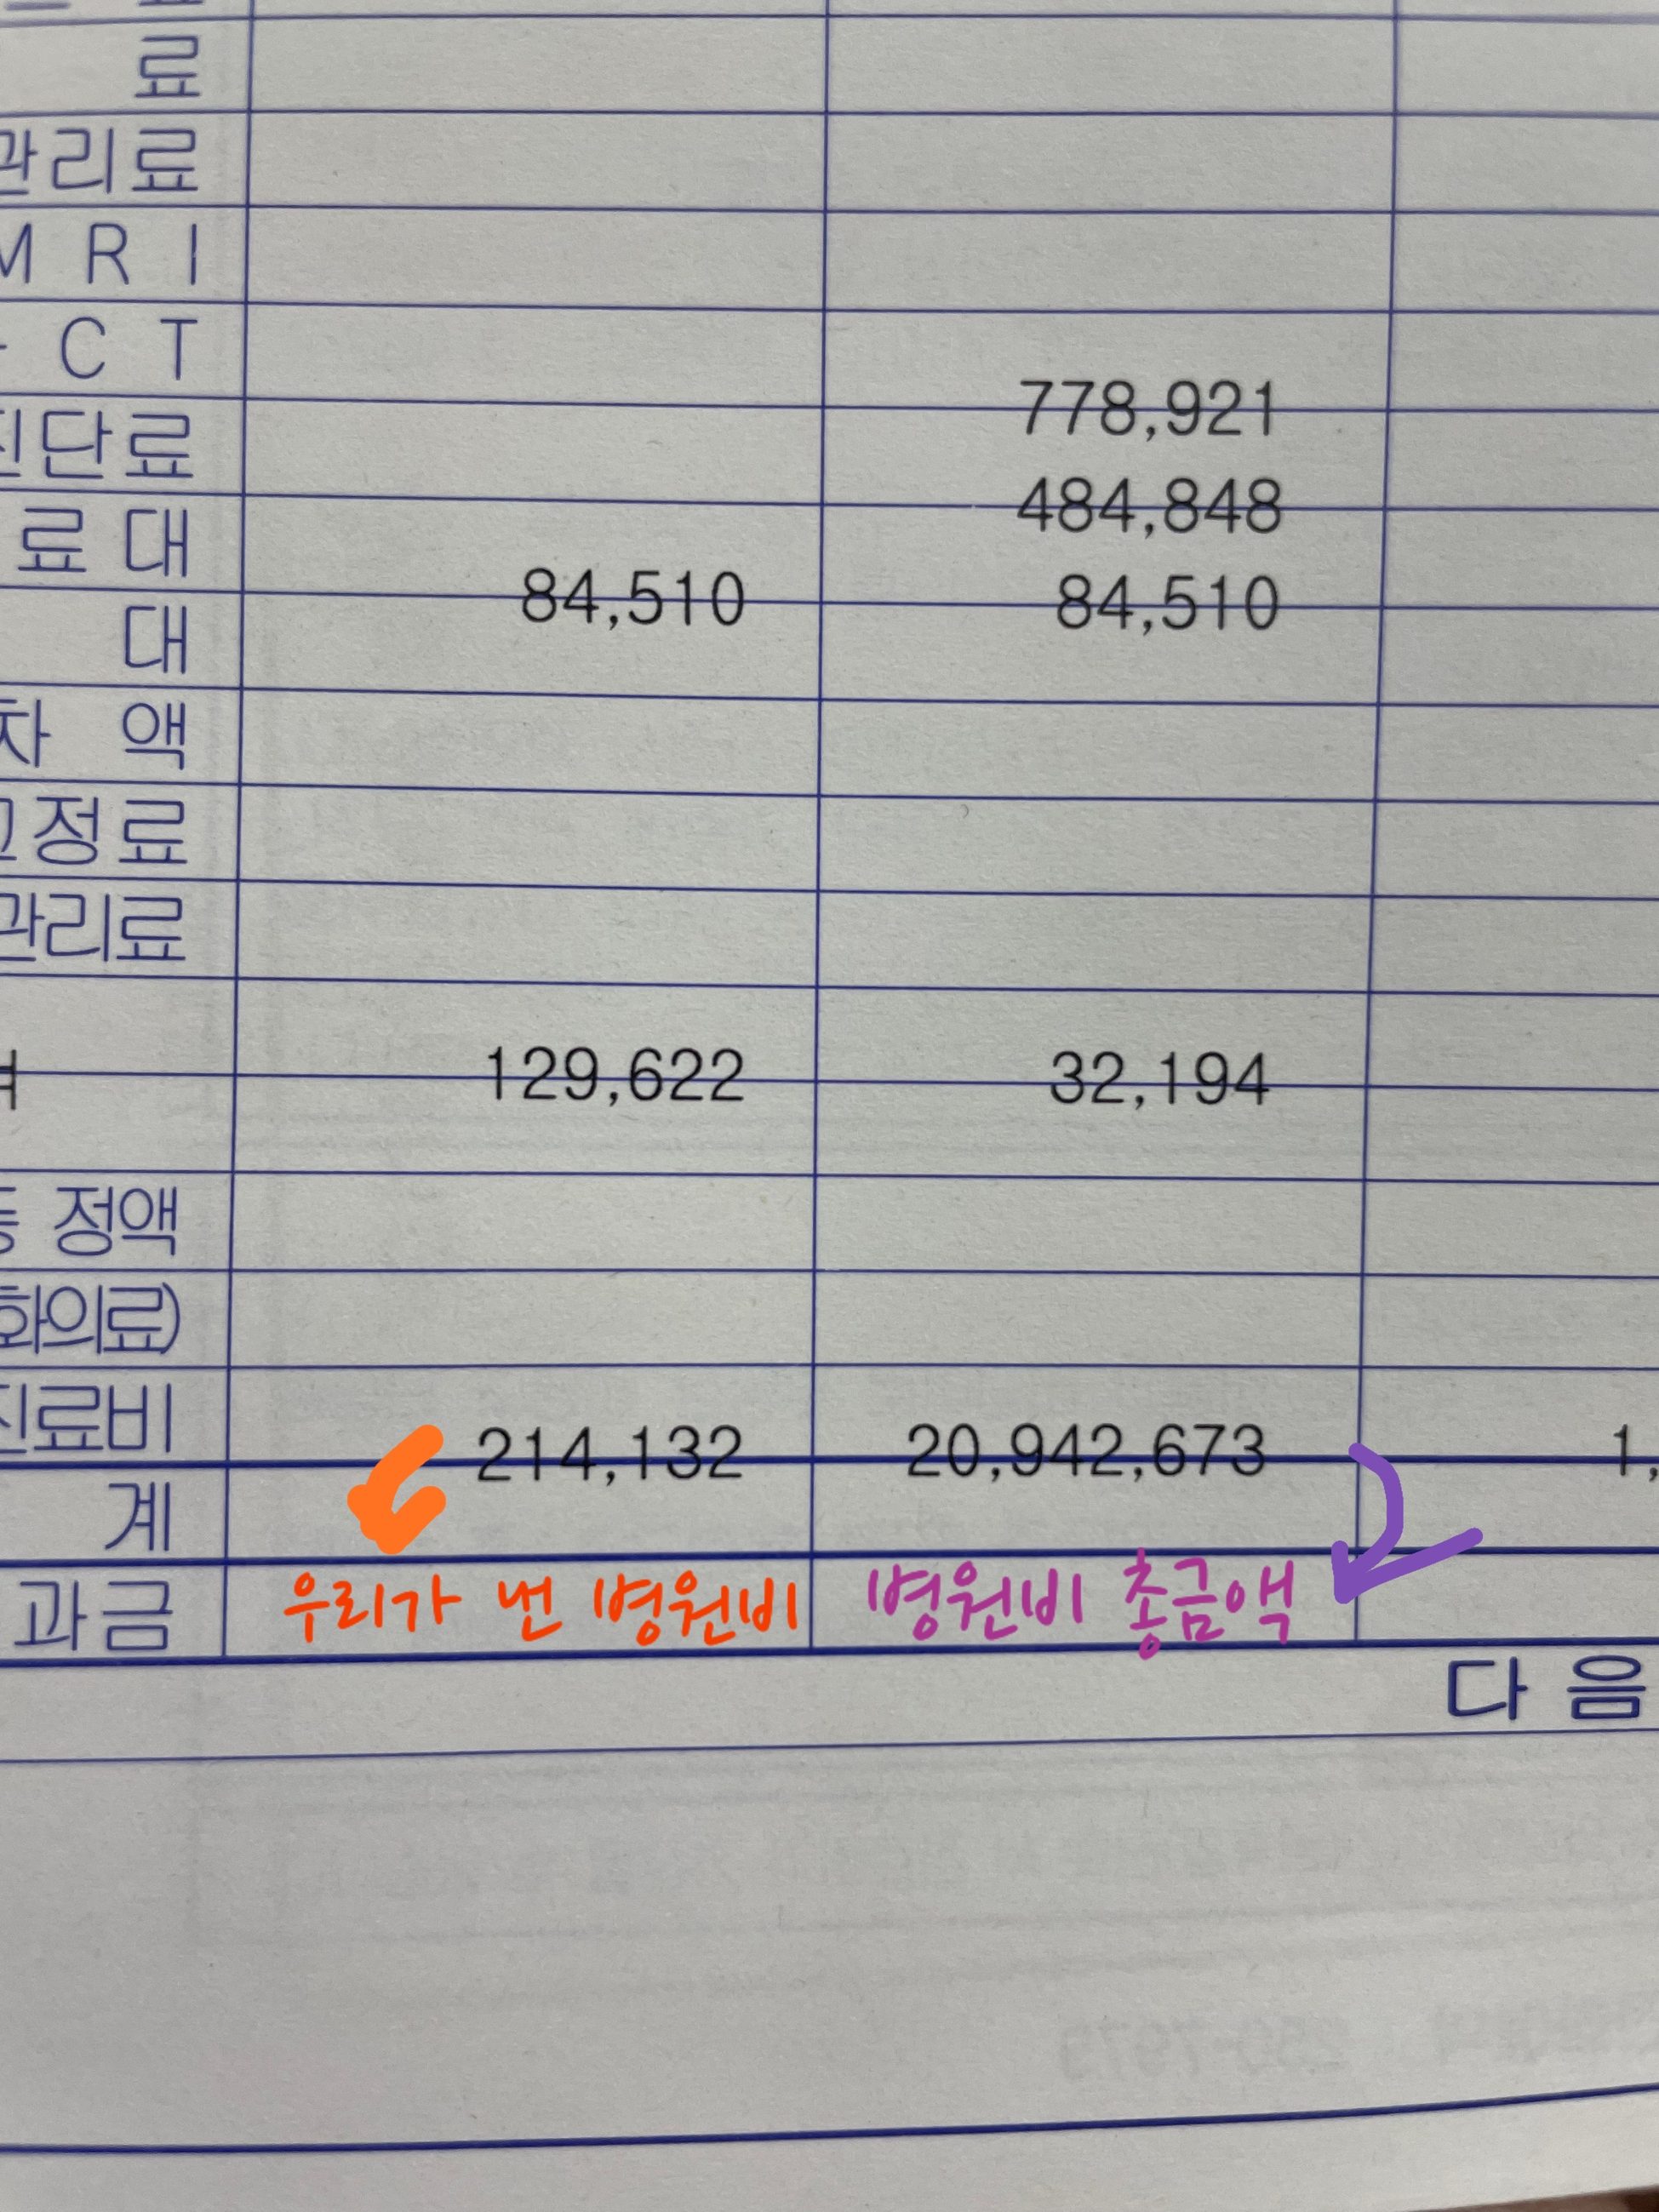 료
관리료
M R I
C T
778,921
진단료
484,848
료 대
84,510 84,510
대
차 액
교정료
관리료
129,622 32,194
등 정액
화의료)
진료비
214,132 20,942,673 1,
계
과금 우리가 번 병원비 병원비 총금액
다 음